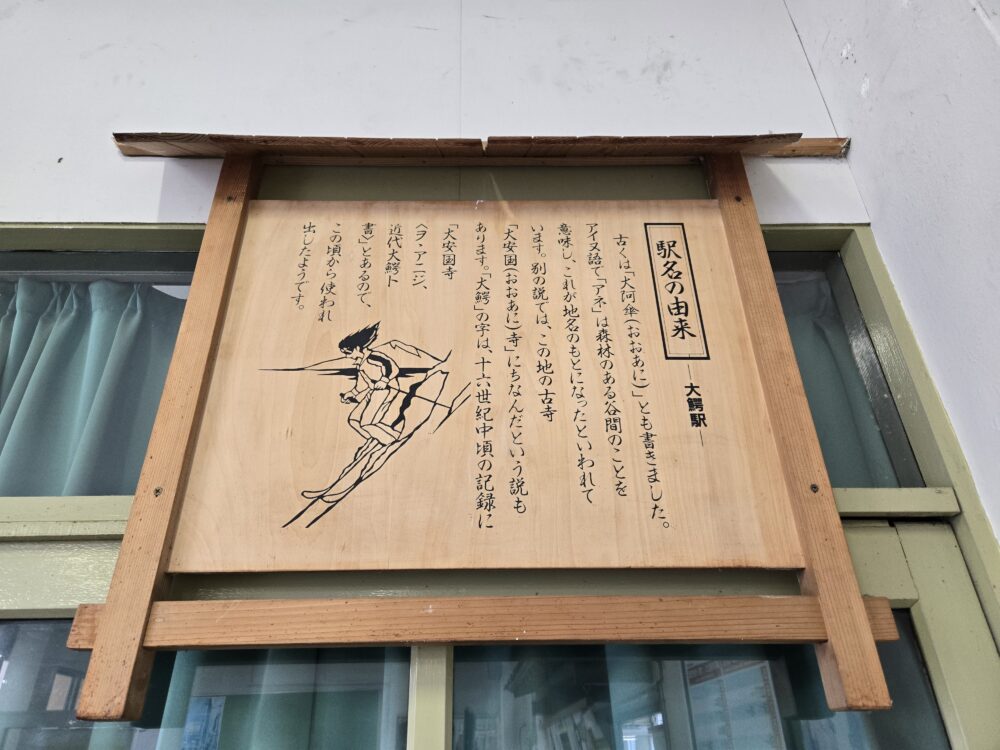 駅名の由来
―大鰐駅―
古くは「大河傘(おおあに)」とも書きました。
アイヌ語で「アネ」は森林のある谷間のことを
意味し、これが地名のもとになったといわれて
います。別の説では、この地の古寺
「大安国(おおあに)寺」にちなんだという説も
あります。「大鰐」の字は、十六世紀中頃の記録に
「大安国寺
(ヲヽアニジ、
近代大鰐ト
書)」とあるので、
この頃から使われ
出したようです。